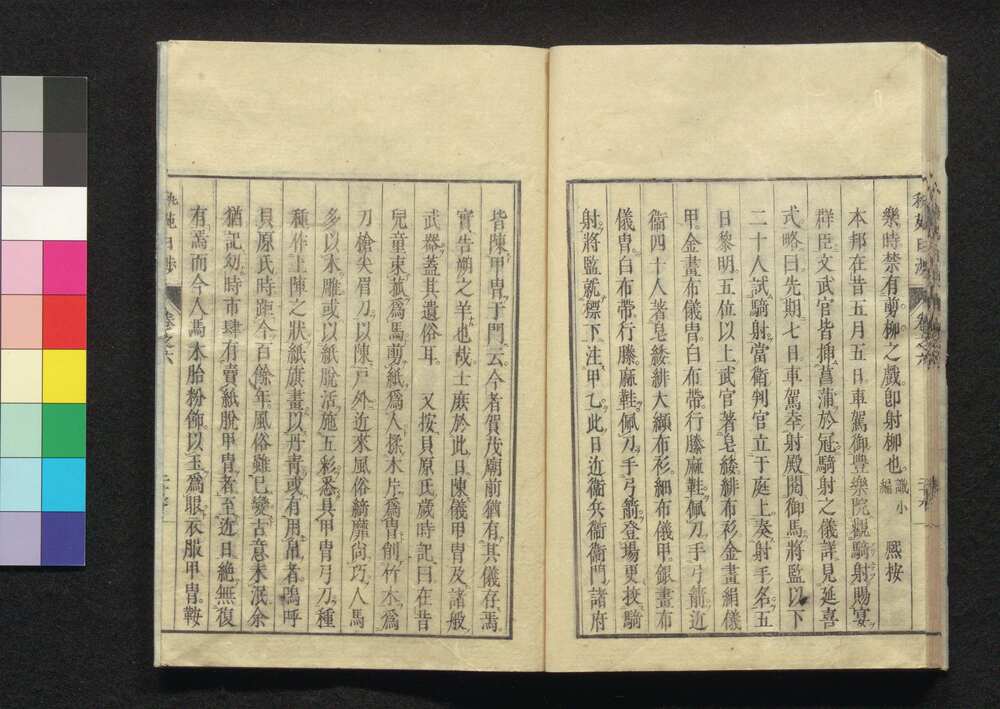 樂時禁有剪柳之戲卽射柳也 識小編 熙按
本邦在昔五月五日車駕御豐樂院觀騎射賜宴
群臣文武官皆挿菖蒲於冠騎射之儀詳見延喜
式略曰先期七日車駕幸射殿閱御馬將監以下
二十人試騎射當衛判官立于庭上奏射手名五
日黎明五位以上武官著皂緌緋布衫金畫絹儀
甲金畫布儀冑白布帶行騰麻鞋佩刀手弓箭近
衛四十人著皂緌緋大纈布衫細布儀甲銀畫布
儀冑白布帶行騰麻鞋佩刀手弓箭登場更挾騎
射將監就標下注甲乙此日近衞兵衞衞門諸府
皆陳甲冑于門云今者賀茂廟前猶有其儀存焉
實告朔之羊也或士庶於此日陳儀甲冑及諸般
武器蓋其遺俗耳 又按貝原氏歲時記曰在昔
兒童束菰爲馬剪紙爲人揉木片爲冑削竹木爲
刀槍尖眉刀以陳戸外近來風俗綺靡尙巧人馬
多以木雕或以紙脫活施五彩悉具甲冑弓刀種
種作上陣之狀紙旗畫以丹青或有用帛者嗚呼
貝原氏時距今百餘年風俗雖已變古意未泯余
猶記幼時市肆有賣紙脫甲冑者至近日絕無復
有焉而今人馬木胎粉飾以玉爲眼衣服甲冑鞍
卷之六